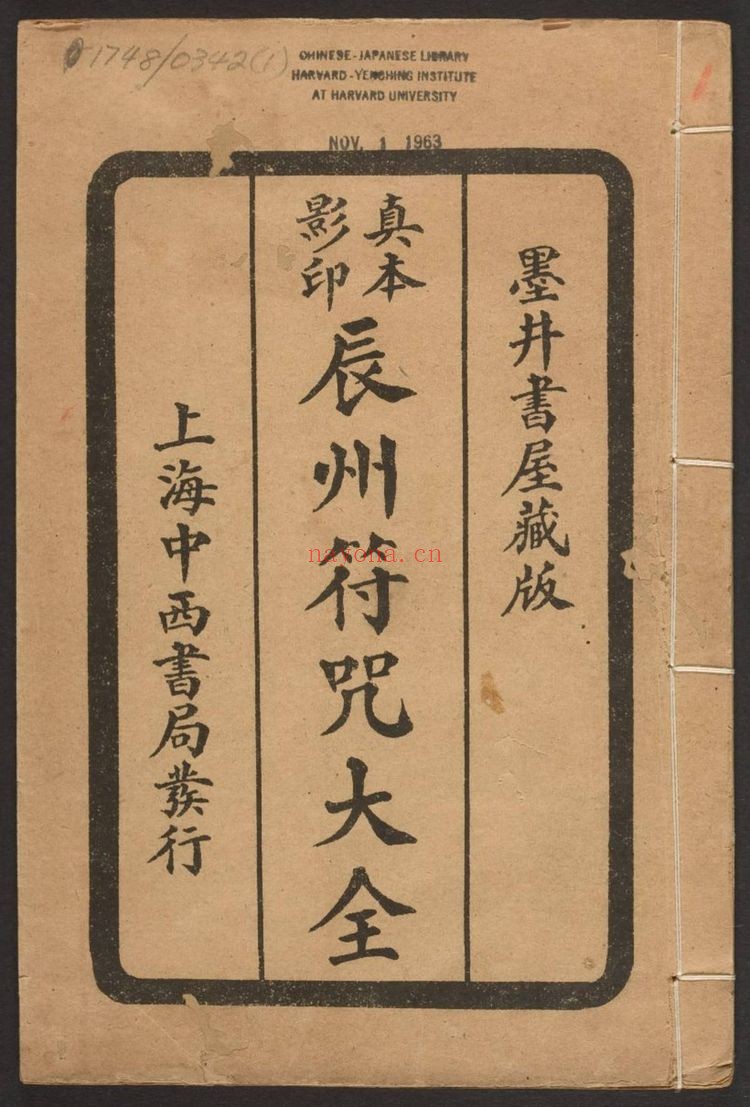 1748/0342(1)
CHINESE-JAPANESE LIBRARY
HARVARD-YENCHING INSTITUTE
AT HARVARD UNIVERSITY
NOV. 1 1963
墨井書屋藏版
真本
影印
辰州符咒大全
上海中西書局發行
nayona.cn